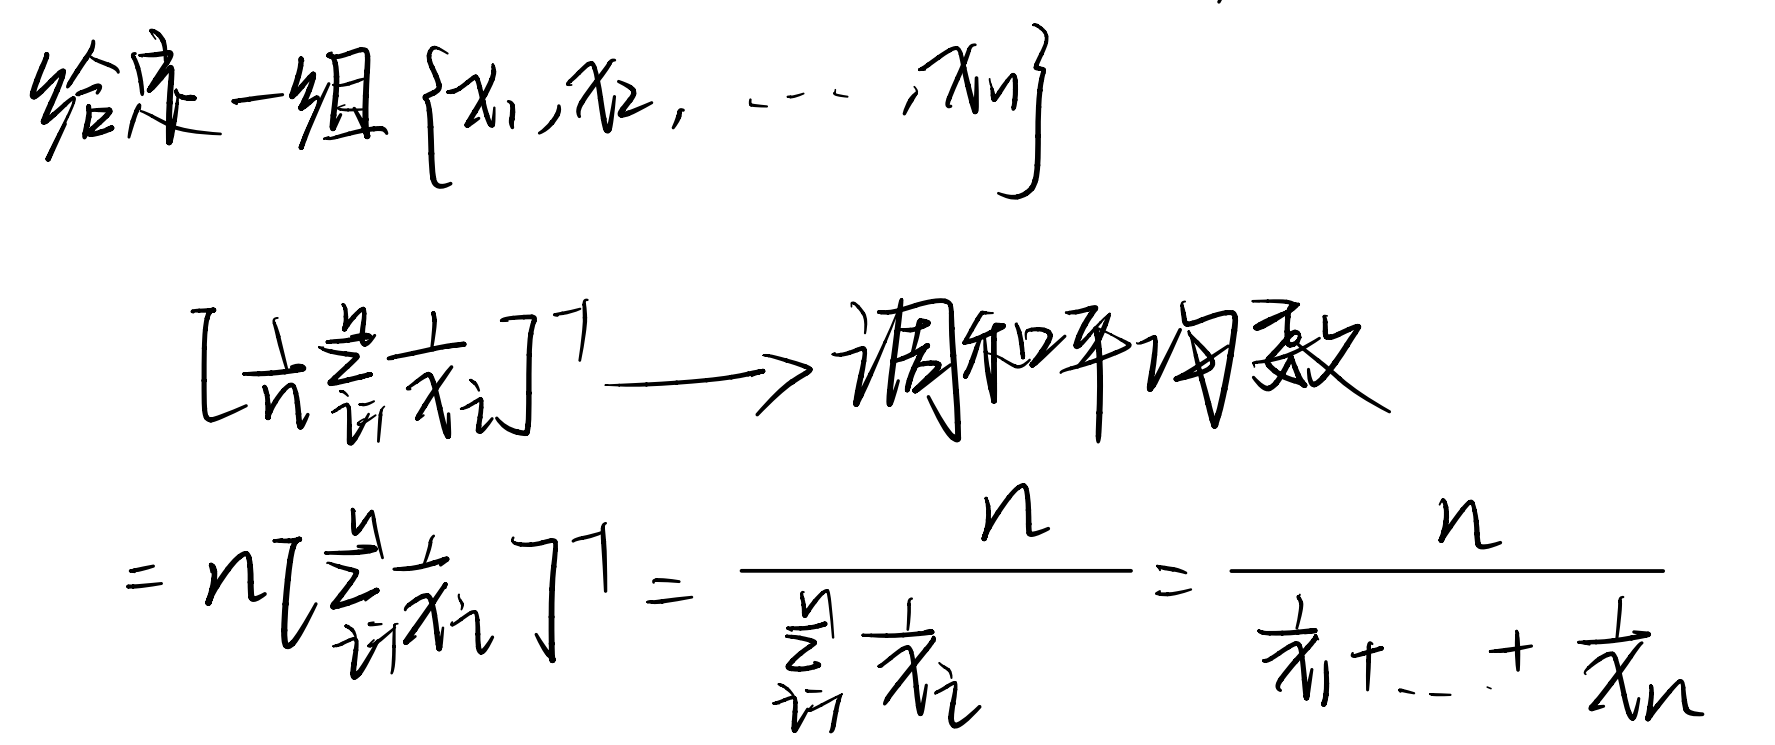 给定一组 {x₁, x₂, ⋯, xₙ}
[1/n ∑ᵢ₌₁ⁿ 1/xᵢ]⁻¹ ⟶ 调和平均数
= n[∑ᵢ₌₁ⁿ 1/xᵢ]⁻¹ = n / (∑ᵢ₌₁ⁿ 1/xᵢ) = n / (1/x₁ + ⋯ + 1/xₙ)